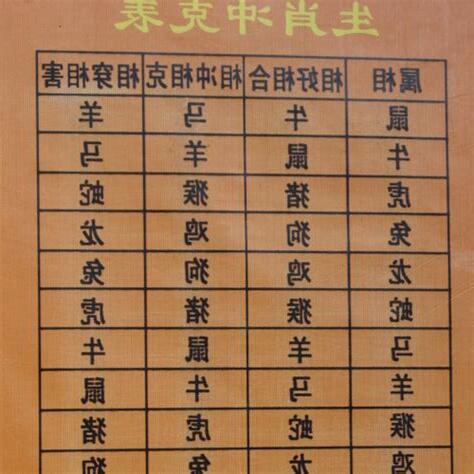 生肖冲克表
属相 相好相合 相冲相克 相穿相害
鼠 牛 马 羊
牛 鼠 羊 马
虎 猪 猴 蛇
兔 狗 鸡 龙
龙 鸡 狗 兔
蛇 猴 猪 虎
马 羊 鼠 牛
羊 马 牛 鼠
猴 蛇 虎 猪
鸡 龙 兔 狗